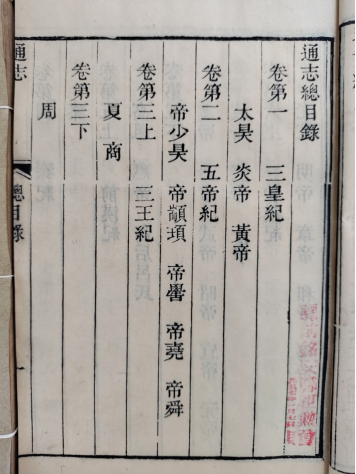 通志總目錄
卷第一 三皇紀
太昊 炎帝 黃帝
卷第二 五帝紀
帝少昊 帝顓頊 帝嚳 帝堯 帝舜
卷第三上 三王紀
夏 商
卷第三下
周
通志 總目錄 一